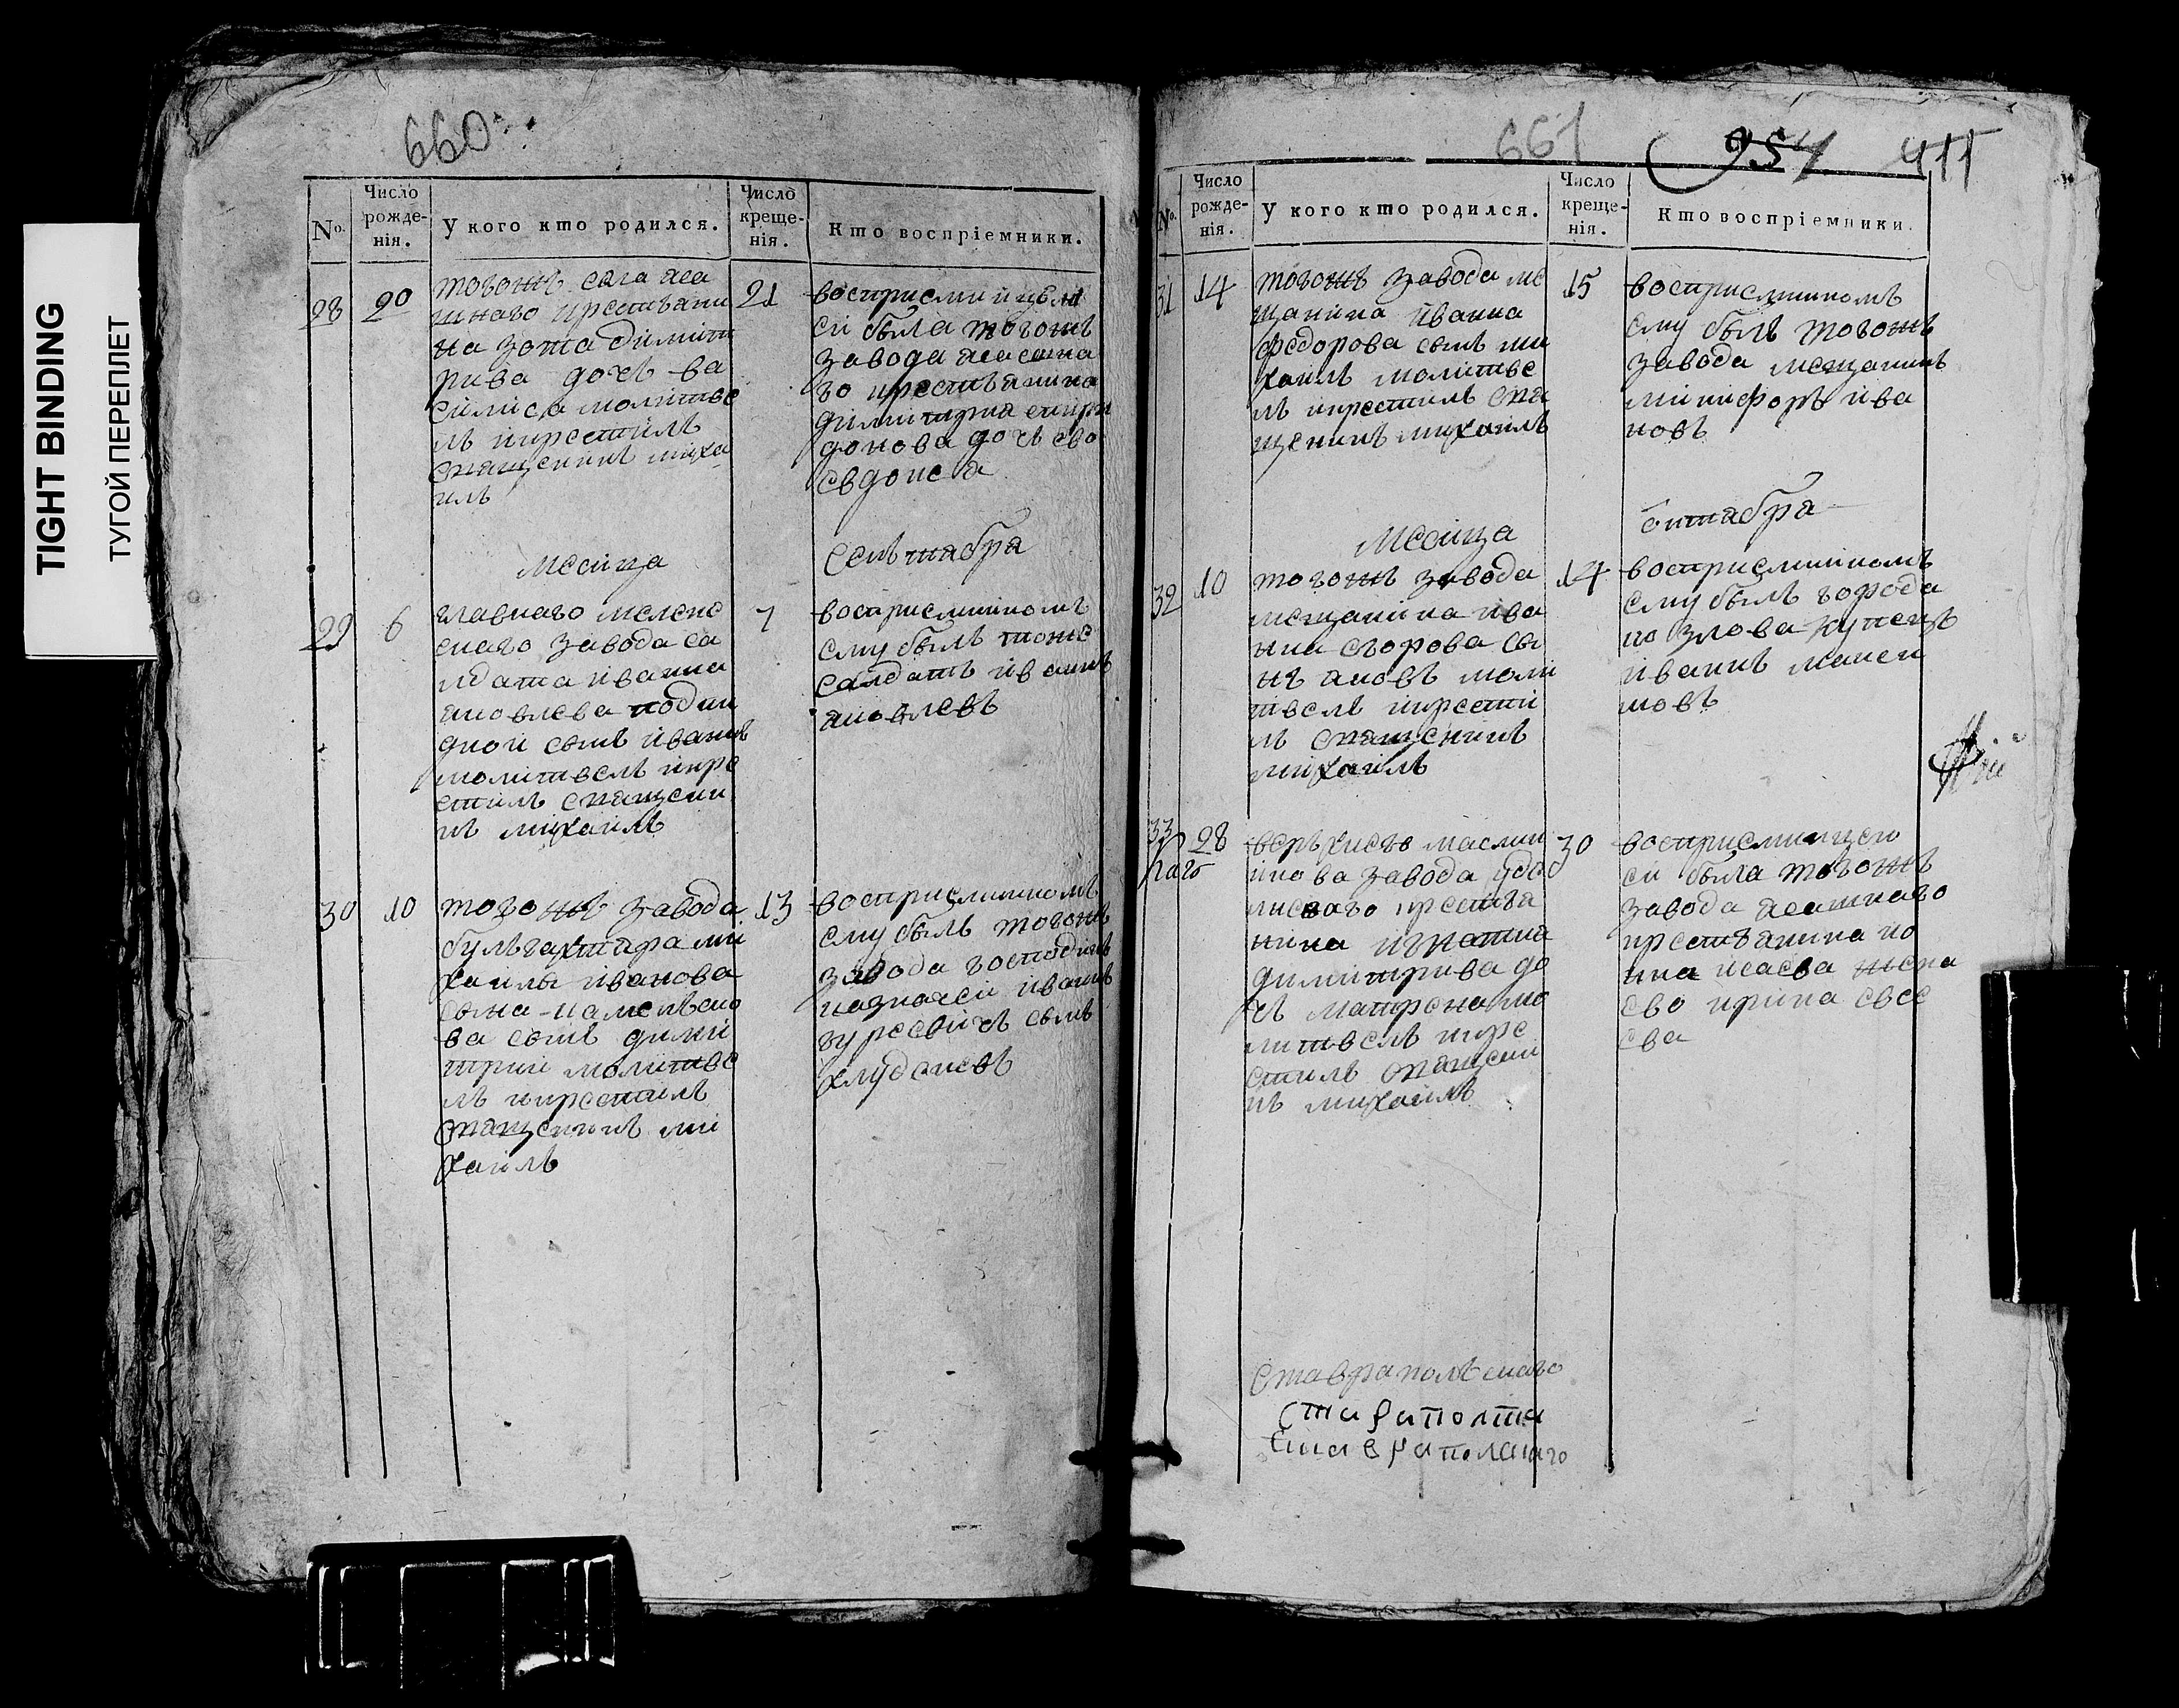 TIGHT BINDING
ТУГОЙ ПЕРЕПЛЕТ
660
No.
Число рожде-нія.
У кого кто родился.
Число креще-нія.
Кто воспріемники.
28
20
тогожъ села яса
шнаго крестьяни
на зота димит
рива дочь ва
силиса молитве
лъ икрестилъ
спащеникъ миха
илъ
21
восприемницею
ей была тогожъ
завода ясашна
го крестьянина
димитрия спири
донова дочь ево
евдокса
Месяца
Сентябра
29
6
главнаго мелеке
скаго завода са
лдата ивана
яковлева подки
дной сынъ иванъ
молитвелъ икре
стилъ спащени
къ михаилъ
7
восприемникомъ
ему былъ тоже
салдатъ иванъ
яковлевъ
30
10
тогожъ завода
булгахтира ми
хаилы иванова
сына
ва сынъ дими
трии молитве
лъ икрестилъ
спащеникъ ми
хаилъ
13
восприемникомъ
ему былъ тогожъ
завода господинъ
казначей иванъ
сынъ
No.
Число рожде-нія.
У кого кто родился.
Число креще-нія.
Кто воспріемники.
661
954
411
31
14
тогожъ завода ме
щанина ивана
федорова сынъ ми
хаилъ молитве
лъ икрестилъ спа
щеникъ михаилъ
15
восприемникомъ
ему былъ тогожъ
завода мещанинъ
никифоръ ива
новъ
Месяца
октября
32
10
тогожъ завода
мещанина ива
на егорова сы
нъ яковъ моли
твелъ икрести
лъ спащеникъ
михаилъ
14
восприемникомъ
ему былъ города
козлова купецъ
иванъ макси
мовъ
33
28
верхнего
завода
крестья
нина игнатия
димитрива до
чь матрена мо
литвелъ икре
стилъ спащени
къ михаилъ
30
восприемницею
ей была тогожъ
завода ясашнаго
крестьянина ио
на исаева жена
ево ирина евсе
ева
Ставраполскаго